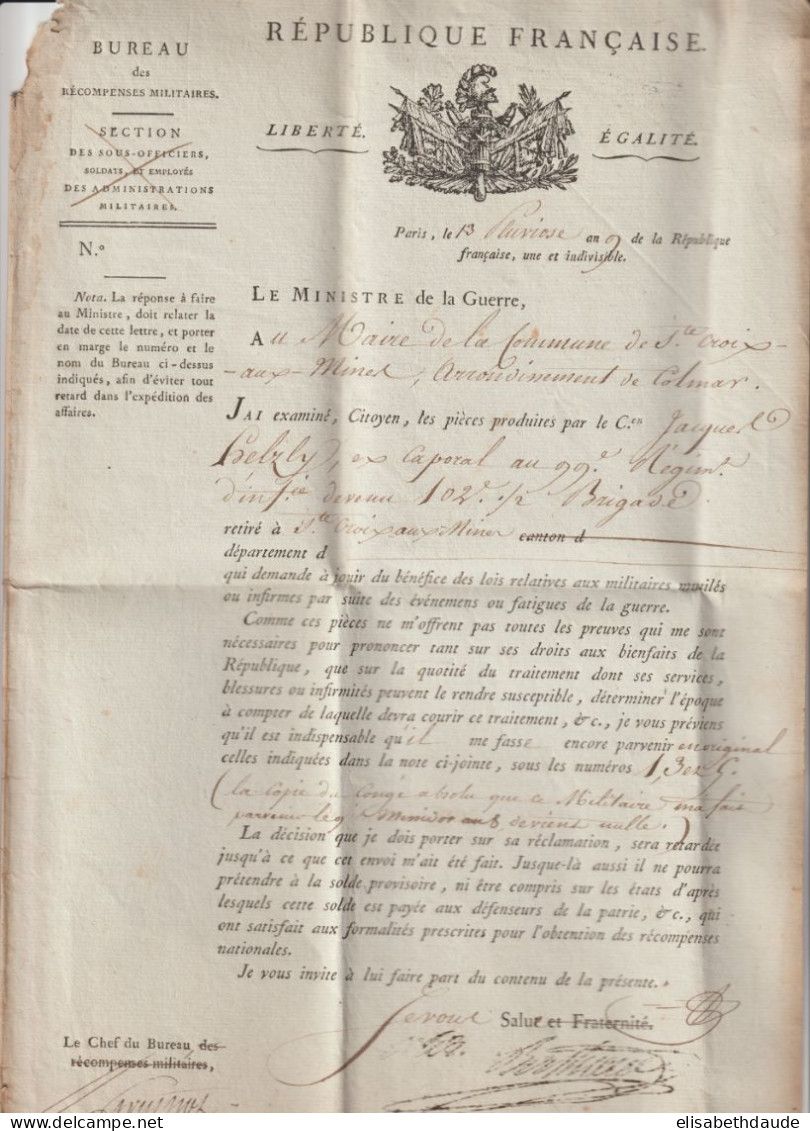 RÉPUBLIQUE FRANÇAISE.
BUREAU
des
RÉCOMPENSES MILITAIRES.
SECTION
DES SOUS-OFFICIERS,
SOLDATS, ET EMPLOYÉS
DES ADMINISTRATIONS
MILITAIRES.
N.º
LIBERTÉ.
ÉGALITÉ.
Paris, le 13 Pluviose an 9 de la République
française, une et indivisible.
Nota. La réponse à faire
au Ministre, doit relater la
date de cette lettre, et porter
en marge le numéro et le
nom du Bureau ci-dessus
indiqués, afin d'éviter tout
retard dans l'expédition des
affaires.
LE MINISTRE de la Guerre,
Au Maire de la Commune de Ste Croix-
-aux-Mines, Arrondissement de Colmar.
JAI examiné, Citoyen, les pièces produites par le C.en Jacques
ex Caporal au 99e. Régimt.
d'inf.ie devenu 102e. 1/2 Brigade
retiré à Ste Croix aux Mines canton d
département d
qui demande à jouir du bénéfice des lois relatives aux militaires mutilés
ou infirmes par suite des événemens ou fatigues de la guerre.
Comme ces pièces ne m'offrent pas toutes les preuves qui me sont
nécessaires pour prononcer tant sur ses droits aux bienfaits de la
République, que sur la quotité du traitement dont ses services,
blessures ou infirmités peuvent le rendre susceptible, déterminer l'époque
à compter de laquelle devra courir ce traitement, &c., je vous préviens
qu'il est indispensable qu'il me fasse encore parvenir en original
celles indiquées dans la note ci-jointe, sous les numéros 1, 3 et 5.
(la copie du Congé absolu que ce Militaire m'a fait
parvenir le 9 an 8 devient nulle.)
La décision que je dois porter sur sa réclamation, sera retardée
jusqu'à ce que cet envoi m'ait été fait. Jusque-là aussi il ne pourra
prétendre à la solde provisoire, ni être compris sur les états d'après
lesquels cette solde est payée aux défenseurs de la patrie, &c., qui
ont satisfait aux formalités prescrites pour l'obtention des récompenses
nationales.
Je vous invite à lui faire part du contenu de la présente.
Je vous Salue et Fraternité.
Le Chef du Bureau des
récompenses militaires,
elisabethdaude